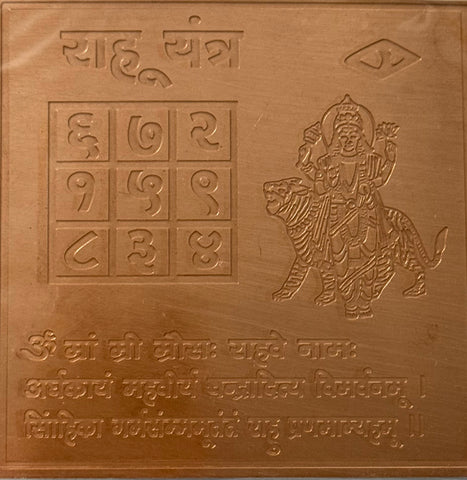 याहू यंत्र
६ ७ २
१ ५ ९
८ ३ ४
ॐ याहवे नामः
अर्धकायं महवीर्य चन्द्रादित्य विमर्वनमू ।
सिांहिका गर्मसंम्ममूतंतं याहु प्रणमाम्यहमू ।।